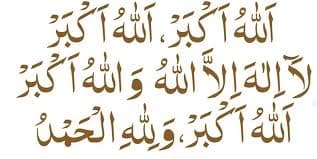 اَللهُ اَكْبَرْ، اَللهُ اَكْبَرْ
لَآ اِلٰهَ اِلاَّ اللهُ وَاللهُ اَكْبَرْ
اَللهُ اَكْبَرْ، وَلِلهِ الْحَمْدُ